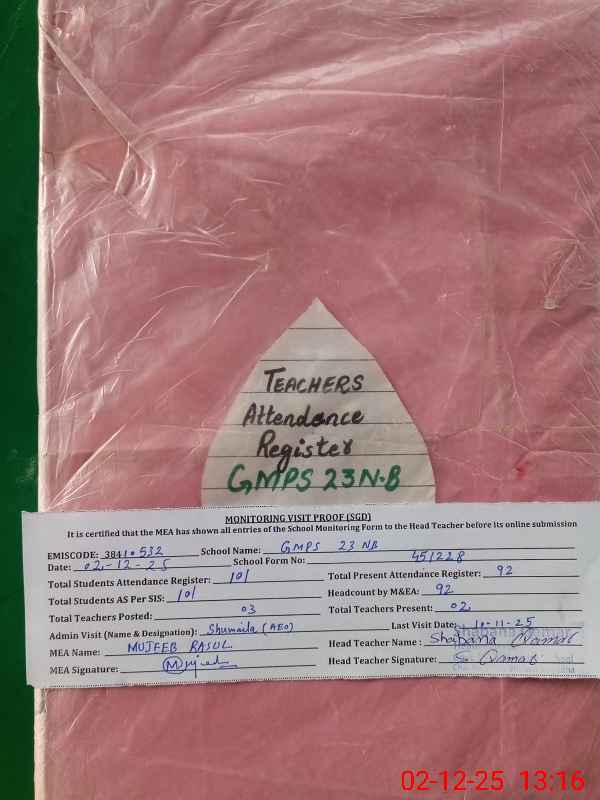 TEACHERS
Attendance
Register
GMPS 23N-B
MONITORING VISIT PROOF (SGD)
It is certified that the MEA has shown all entries of the School Monitoring Form to the Head Teacher before its online submission
EMISCODE: 38410532 School Name: GMPS 23 NB
Date: 02-12-25 School Form No: 451228
Total Students Attendance Register: 101 Total Present Attendance Register: 92
Total Students AS Per SIS: 101 Headcount by M&EA: 92
Total Teachers Posted: 03 Total Teachers Present: 02
Admin Visit (Name & Designation): Shumaila (AEO) Last Visit Date: 10-11-25
MEA Name: MUJEEB RASUL Head Teacher Name: Shabana
MEA Signature: Head Teacher Signature:
02-12-25 13:16